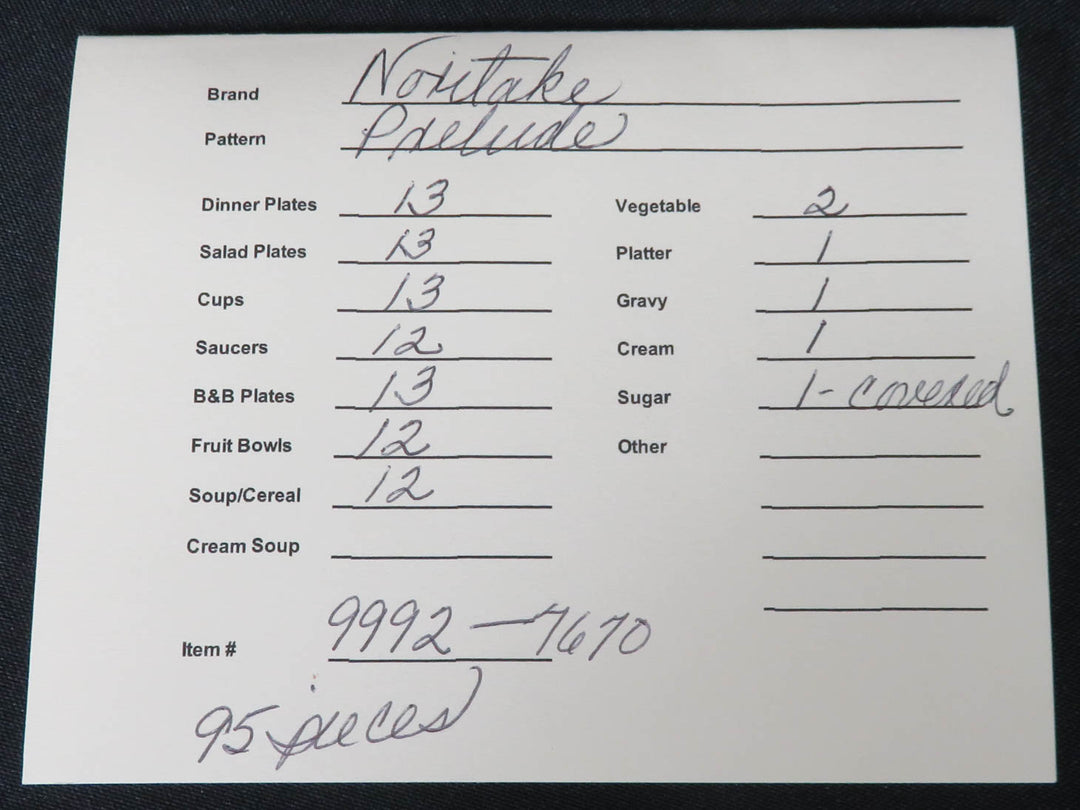 Brand Noritake
Pattern Prelude
Dinner Plates 13
Salad Plates 13
Cups 13
Saucers 12
B&B Plates 13
Fruit Bowls 12
Soup/Cereal 12
Cream Soup
Vegetable 2
Platter 1
Gravy 1
Cream 1
Sugar 1- covered
Other
Item # 9992-7670
95 pieces